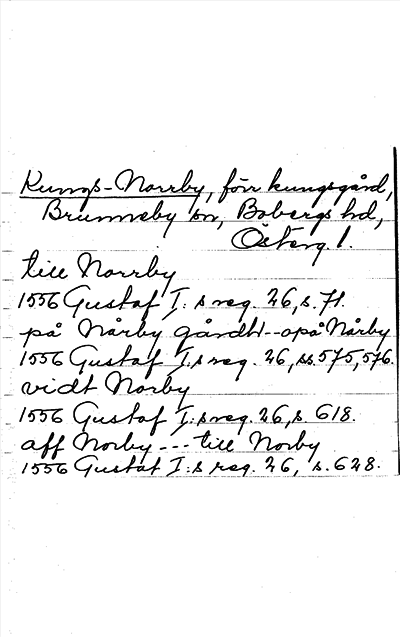 Kungs-Norrby, förr kungsgård,
Brunneby sn, Bobergs hd,
Österg. l.
till Norrby
1556 Gustaf I:s reg. 26, s. 71.
på Nårby gårdh--opå Nårby
1556 Gustaf I:s reg. 26, ss. 575, 576.
vidt Norby
1556 Gustaf I:s reg. 26, s. 618.
aff Norby --- till Norby
1556 Gustaf I:s reg. 26, s. 628.